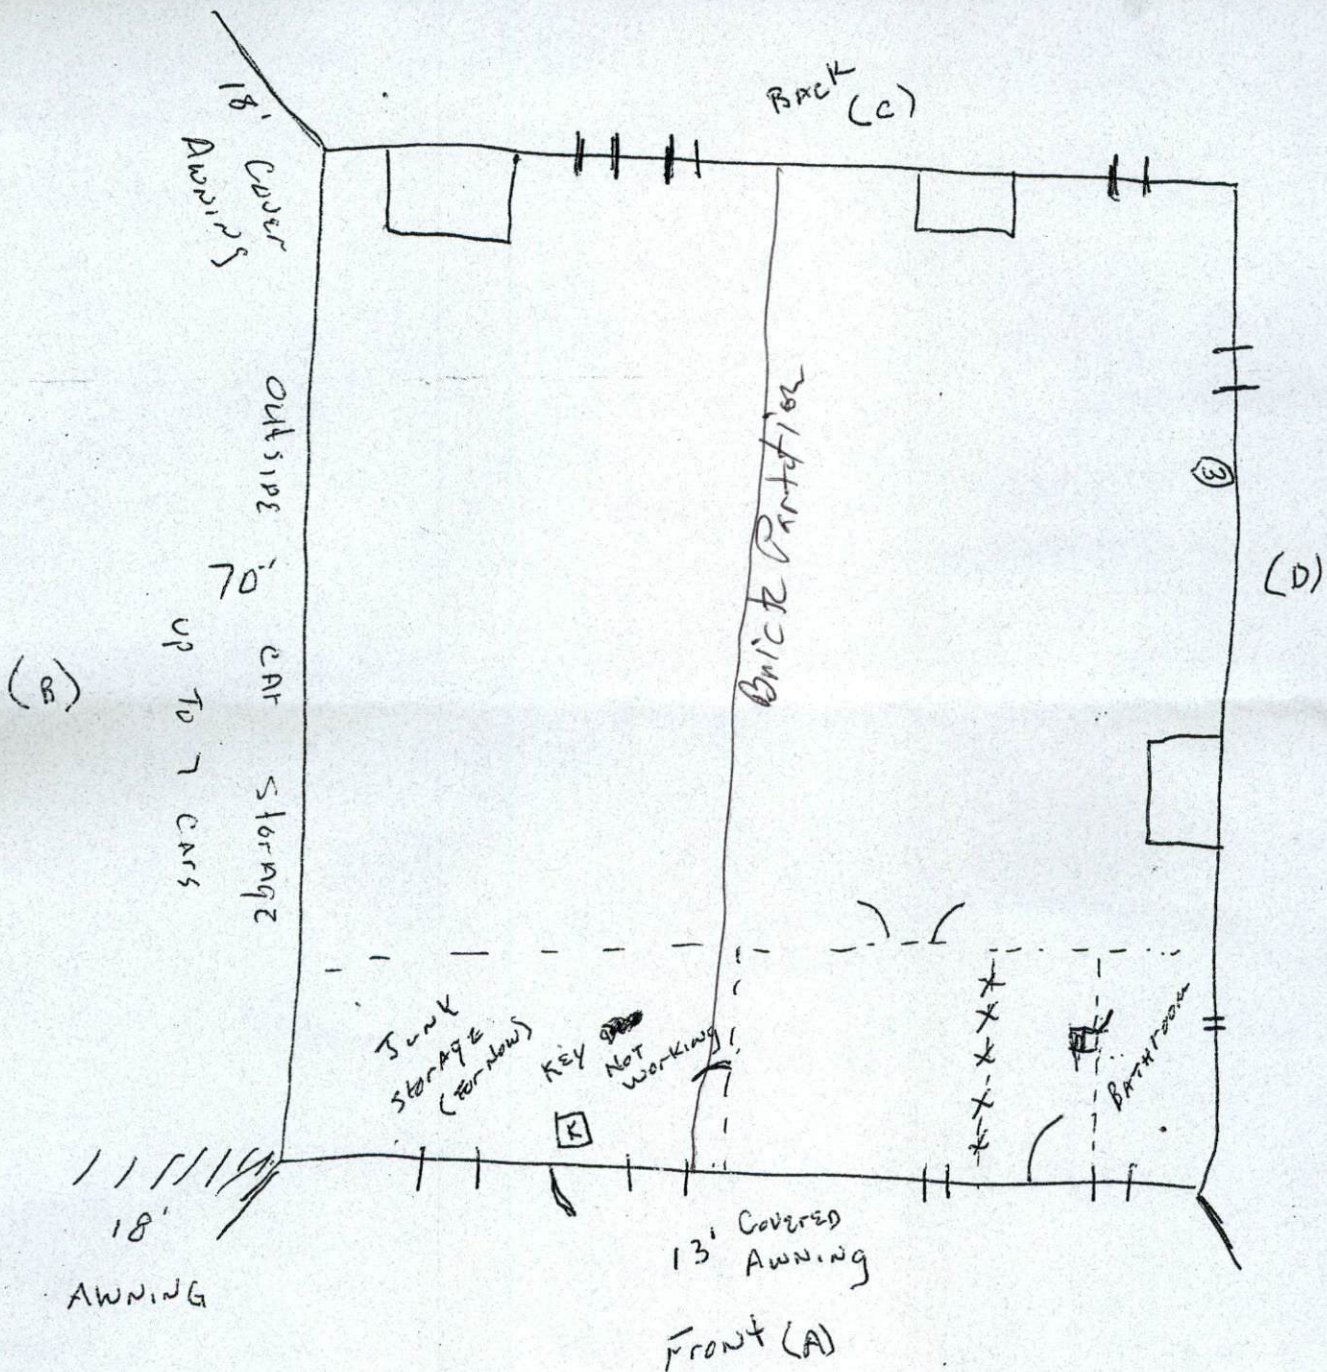 BACK
(C)
18' COVER
AWNING
OUTSIDE CAR STORAGE
70'
UP TO 7 CARS
(B)
Brick Partition
(D)
JUNK
STORAGE
(FOR NOW)
KEY
NOT
WORKING
K
BATHROOM
18'
AWNING
13' COVERED
AWNING
FRONT (A)